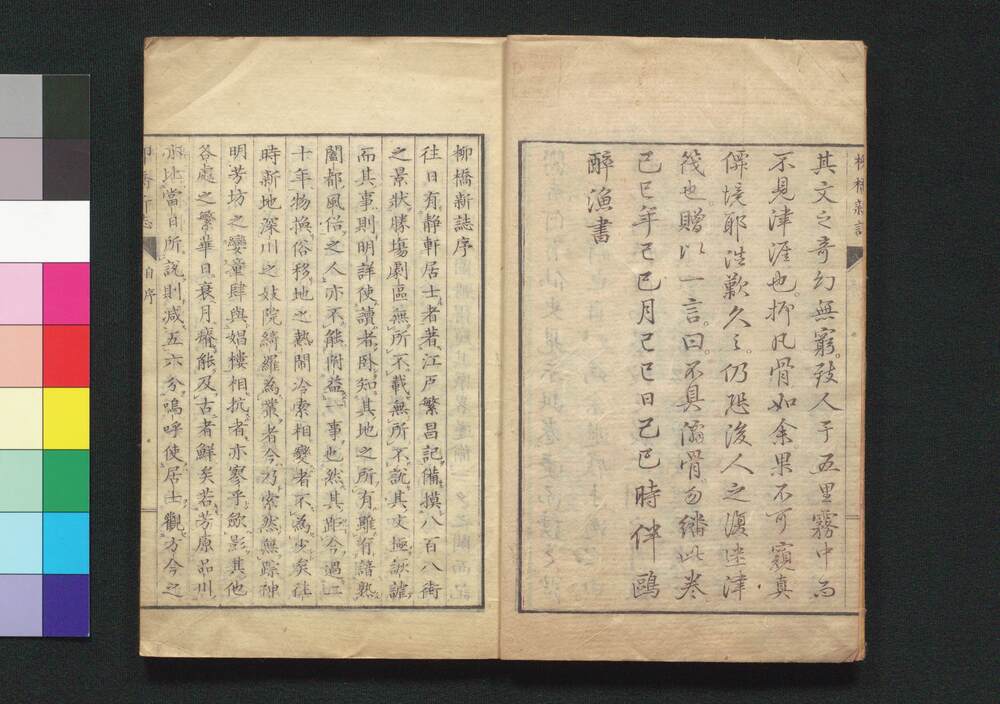 其文之奇幻無窮致人于五里霧中而
不見津涯也抑凡骨如余果不可窺真
僊境耶浩歎久之仍恐後人之復迷津
筏也贈以一言曰不具僊骨勿繙此卷
己巳年己巳月己巳日己巳時伴鷗
醉漁書
柳橋新誌
柳橋新誌序
往日有静軒居士者著江戸繁昌記備摸八百八街
之景狀勝塲劇區無所不載無所不説其文極詼謔
而其事則明詳使讀者卧知其地之所有雖有諳熟
闔都風俗之人亦不能附益一事也然其距今過二
十年物換俗移地之熱鬧冷索相變者不為少矣徃
時新地深川之妓院綺羅為叢者今乃索然無踪神
明芳坊之孌童肆與娼樓相抗者亦寥乎歛影其他
各處之繁華日衰月癈能及古者鮮矣若芳原品川
亦比當日所説則减五六分嗚呼使居士觀方今之
柳橋新誌
自序